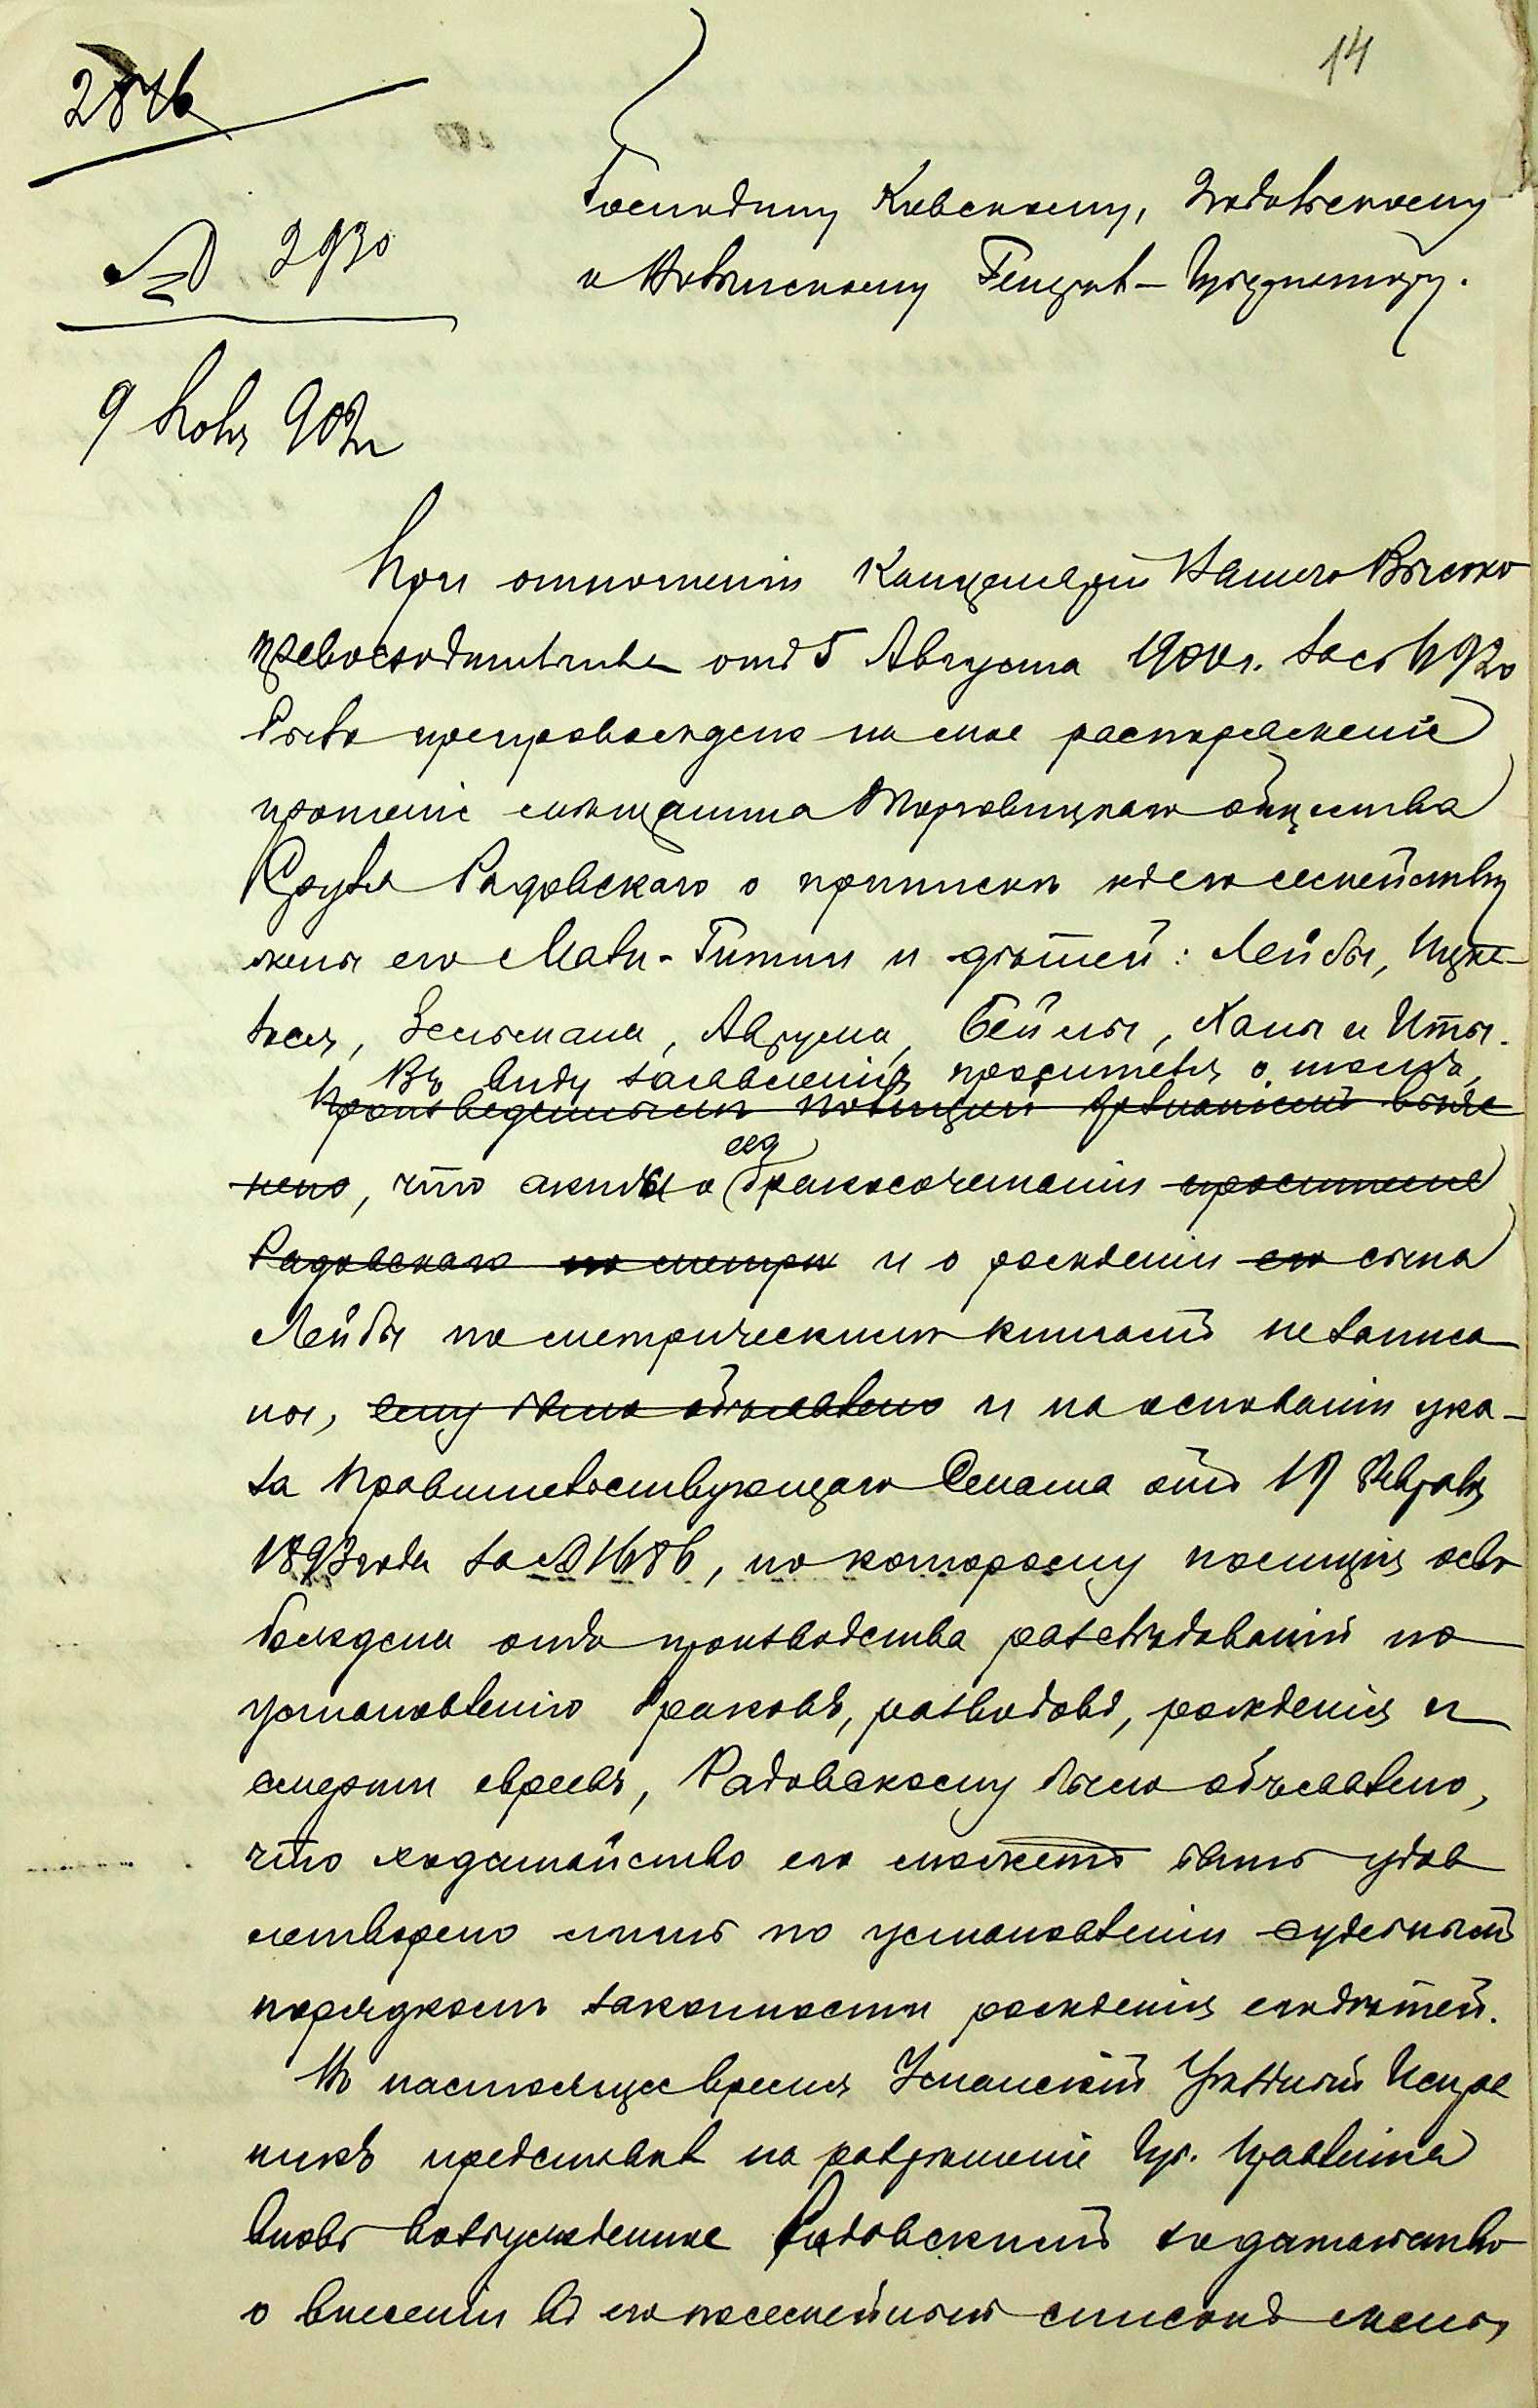 14
2846
№ 2930
9 Ноя 902 г
Господину Кіевскому, Подольскому
и Волынскому Генерал-Губернатору.
При отношеніи Канцеляріи Вашего Высоко
превосходительства отъ 5 Августа 1900 г. за №
было препровождено на мое распоряженіе
прошеніе мѣщанина Торговицкаго общества
Сруля Радовскаго о припискѣ къ его семейству
жены его Малки-Гитли и дѣтей: Лейбы, Ицко-
Зельмана, Аврума, Бейлы, Ханы и Иты.
Въ виду заявленія просителя о томъ,
Произведеннымъ полиціей дознаніемъ выяс
нено, что акты о его бракосочетаніи просителя
Радовскаго по метри и о рожденіи его сына
Лейбы по метрическимъ книгамъ не записа
ны, ему было объявлено и на основаніи ука-
за Правительствующаго Сената отъ 19 Февраля
1893 года за № 1686, по которому полиція осво
бождена отъ производства разслѣдованій по
установленію браковъ, разводовъ, рожденія и
смерти евреевъ, Радовскому было объявлено,
что ходатайство его можетъ быть удов
летворено лишь по установленіи судебнымъ
порядкомъ законности рожденія его дѣтей.
Въ настоящее время Уманскій Уѣздный Исправ
никъ представилъ на разрѣшеніе Губ. Правленія
вновь возбужденное Радовскимъ ходатайство
о внесеніи въ его посемейный списокъ жены,